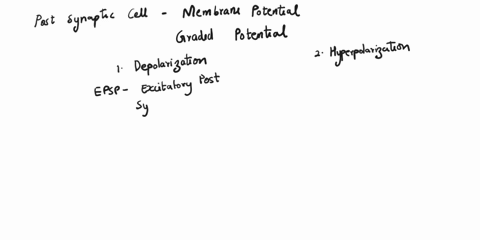 Post Synaptic Cell - Membrane Potential
Graded Potential
1. Depolarization
2. Hyperpolarization
EPSP - Excitatory Post
Sy